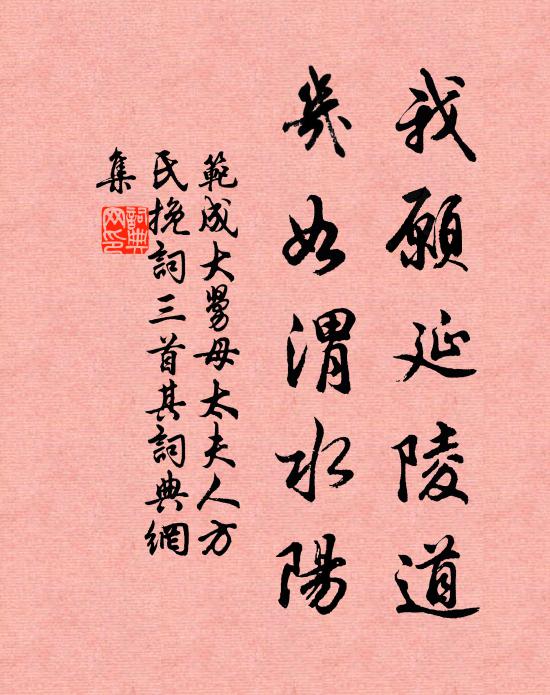 我願延陵道
幾如渭水陽
範成大舅母太夫人方
氏挽詞三首其詞典網
集
詞典
网印